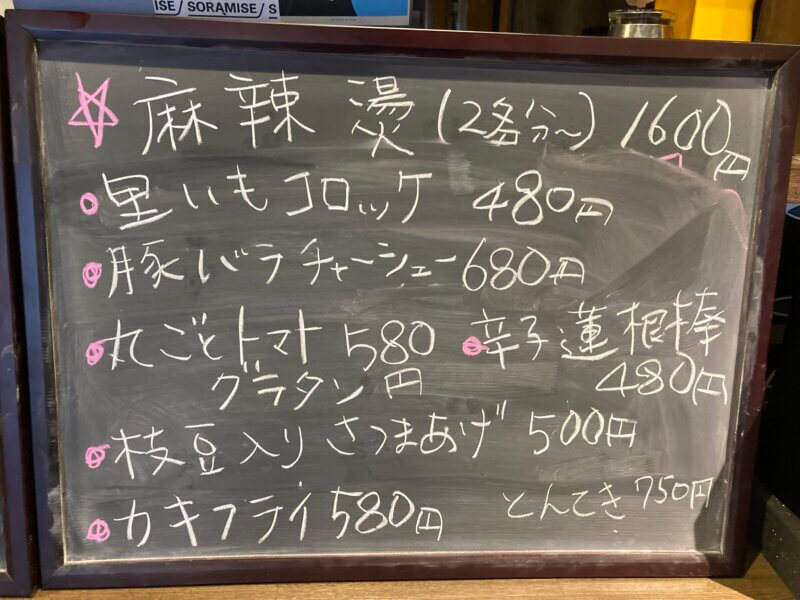 ISE / SORAMISE / S
☆ 麻辣燙 (2名分〜) 1600円
里いもコロッケ 480円
豚バラチャーシュー 680円
丸ごとトマト 580
グラタン 円
辛子蓮根棒
480円
枝豆入りさつまあげ 500円
カキフライ 580円
とんてき 750円